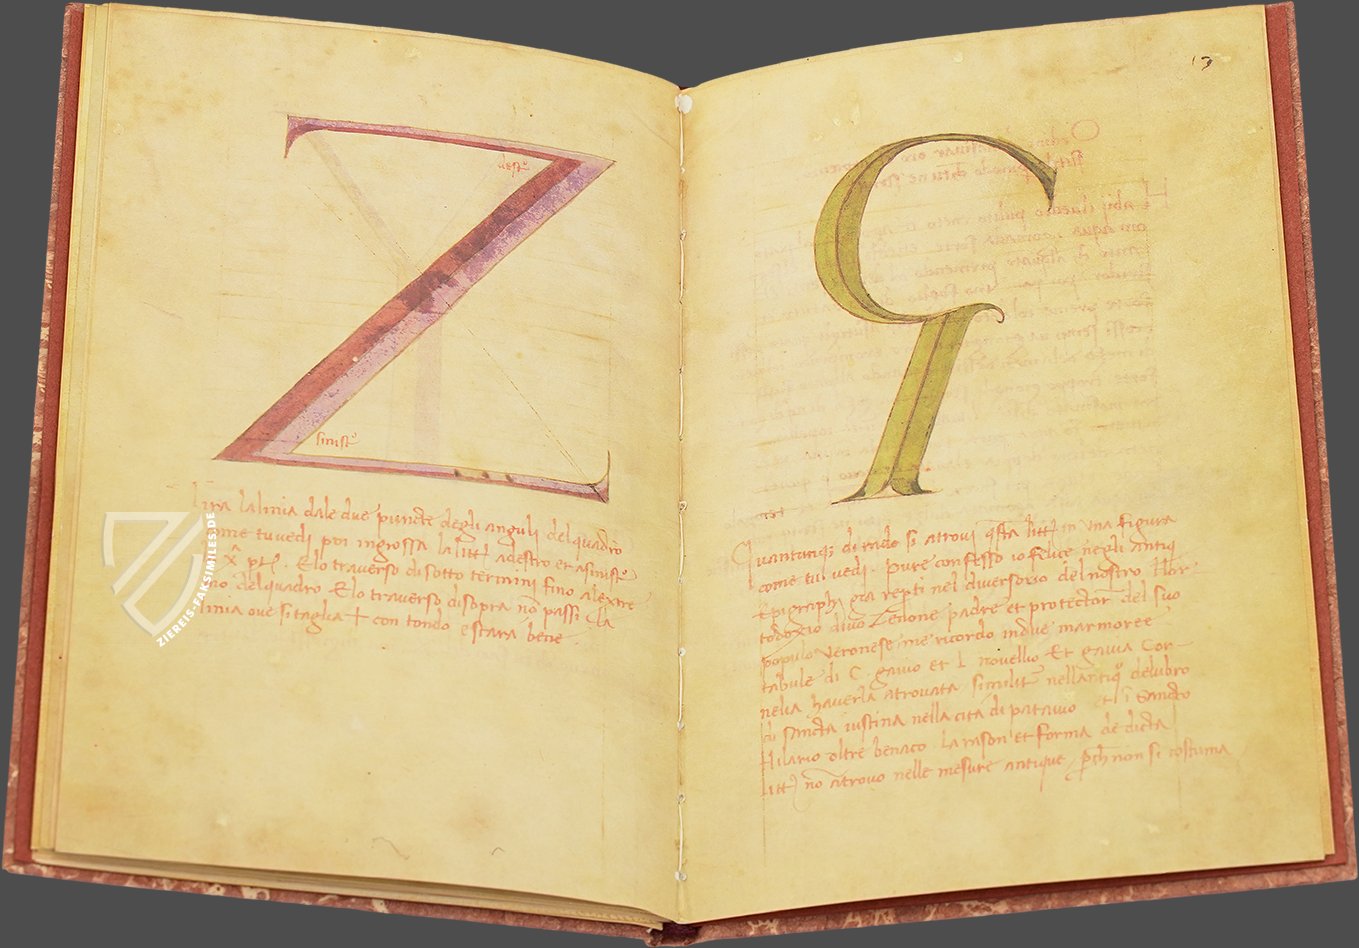 Z
destº
sinistº
Tira la linia dale due puncte degli anguli del quadro
come tu vedi poi ingrossa la litt adestro et asinistº
x pt. E lo traverso disotto termini fino al extre
mo del quadro E lo traverso disopra nō passi la
linia ove si taglia + con tondo e stara bene
ZIEREIS-FAKSIMILES.DE
13
Quantunq3 di rado si atrovi qsta litt in una figura
come tu vedi. pure confesso io felice negli antiqi
Epigraphi gia repti nel diversorio del nostro
divo Zenone padre et protector del suo
populo veronese me ricordo in due marmoree
tabule di C. gavio et L novellio Et gavia Cor-
nelia haverla atrovata similit nellantiqº delubro
di sancta iustina nella cita di patavio et ī Sancto
Hilario oltre benaco. la rason et forma de dicta
litt nō atrovo nelle mesure antique, pch non si costuma